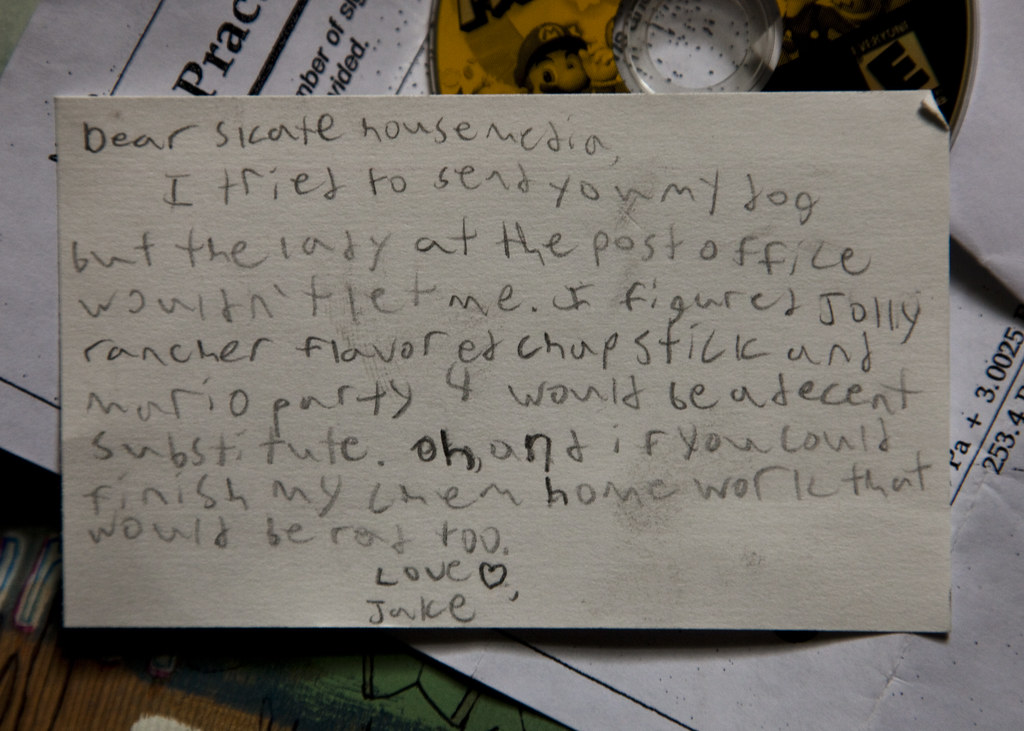 Prac
mber of si
vided.
E
Dear skate housemedia,
I tried to send you my dog
but the lady at the post office
wouldn't let me. I figured Jolly
rancher flavored chapstick and
mario party 4 would be a decent
substitute. oh, and if you could
finish my chem home work that
would be rad too.
Love ♡,
Jake
Pa + 3.0025
253.4